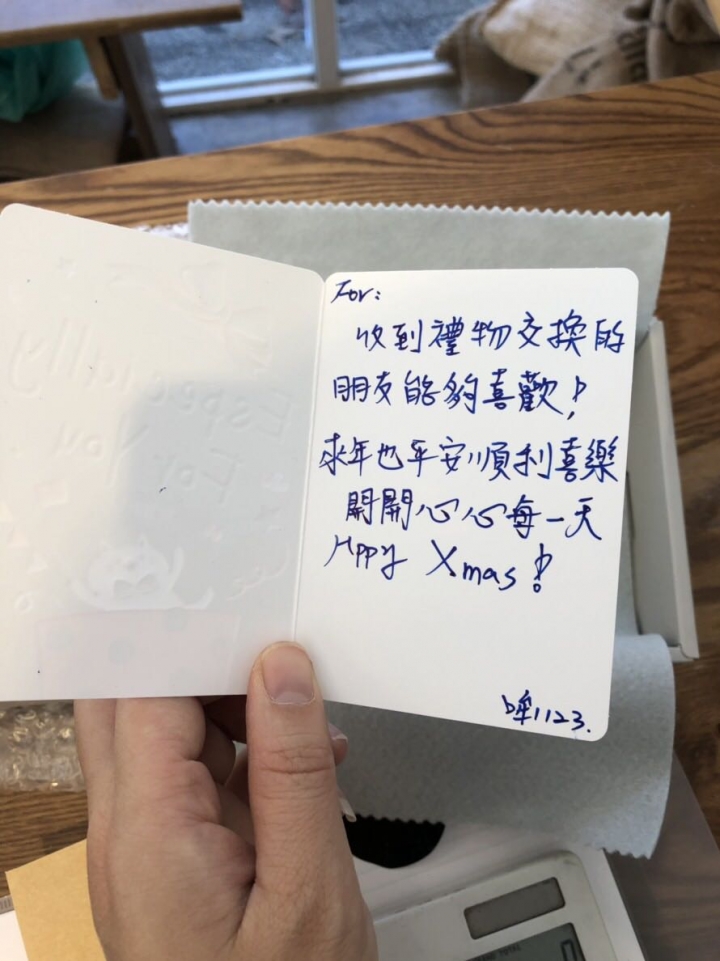 For:
收到禮物交換的
朋友能夠喜歡!
來年也平安順利喜樂
開開心心每一天
Hppy Xmas!
哞1123.
Especially
For You